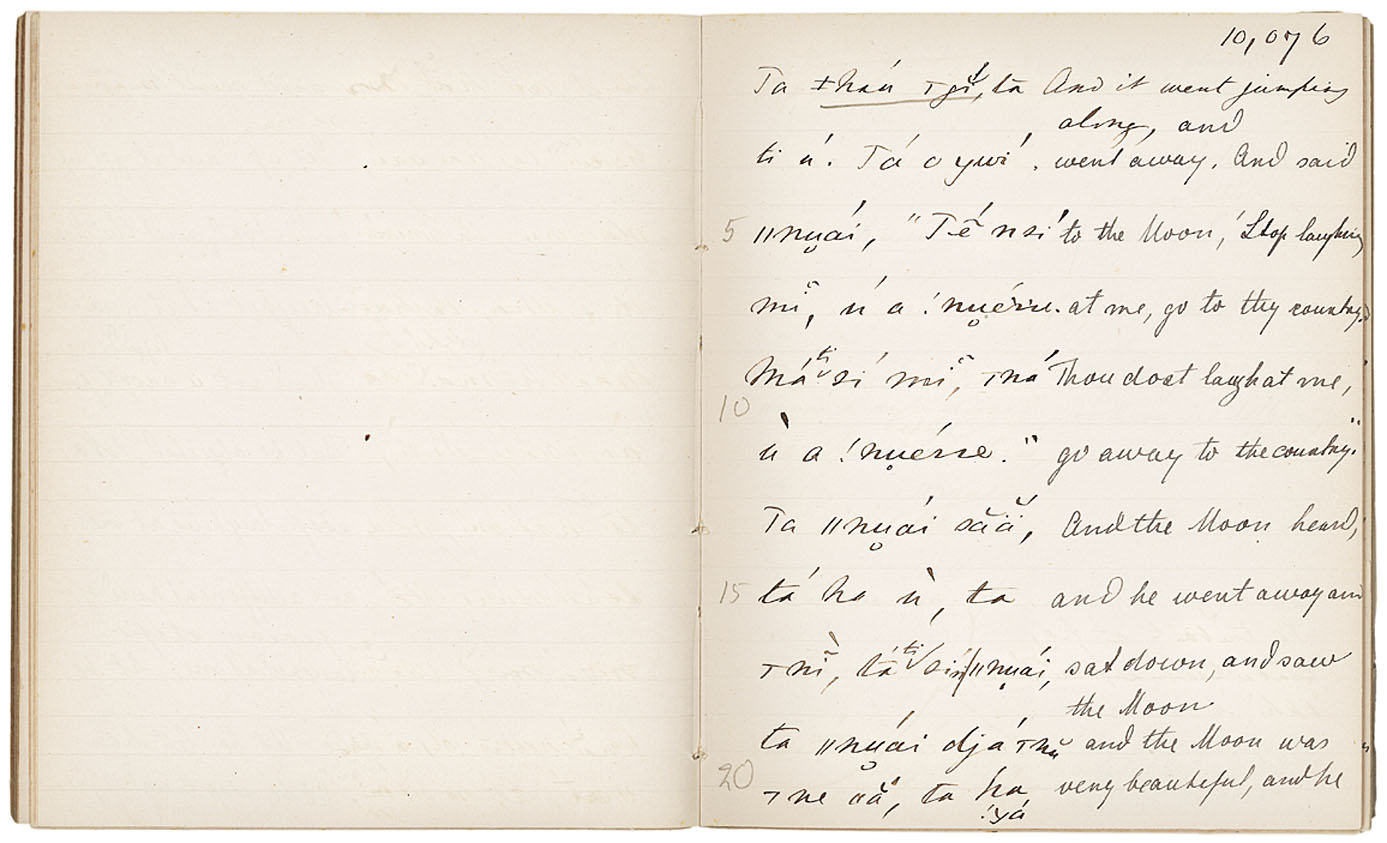 10,076
Ta ǂháú ꞇgi̋, ta And it went jumping
along, and
ti ú. Tá o ywí. went away. And said
5 ǁnu̬ái, "Té̃ n sí to the Moon, 'Stop laughing
mĩ, ú a !nu̬érre. at me, go to thy country.
Má ti sí mĩ, ꞇná Thou dost laugh at me,
10
ù a !nu̬érre." go away to the country."
Ta ǁnu̬ái săä, And the Moon heard,
15 tá ha ù, ta and he went away and
ꞇnĩ̀, tá ti ǁnu̬ái, sat down, and saw
the Moon
ta ǁnu̬ái djá and the Moon was
20 ꞇne, ta ha very beautiful, and he
!yá